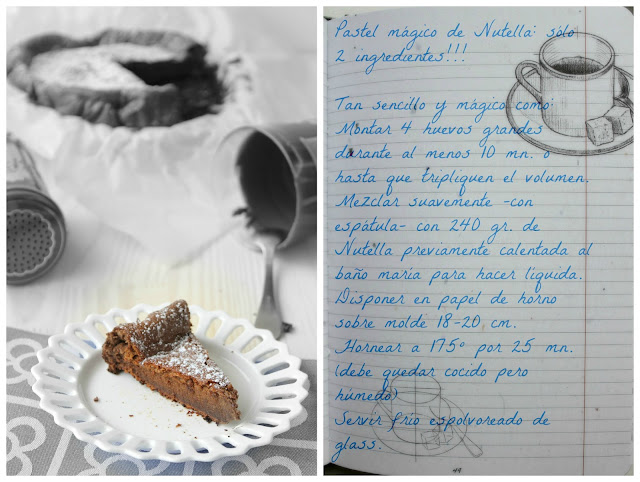 Pastel mágico de Nutella: sólo
2 ingredientes!!!
Tan sencillo y mágico como:
Montar 4 huevos grandes
durante al menos 10 mn. o
hasta que tripliquen el volumen.
Mezclar suavemente -con
espátula- con 240 gr. de
Nutella previamente calentada al
baño maría para hacer líquida.
Disponer en papel de horno
sobre molde 18-20 cm.
Hornear a 175º por 25 mn.
(debe quedar cocido pero
húmedo)
Servir frío espolvoreado de
glass.